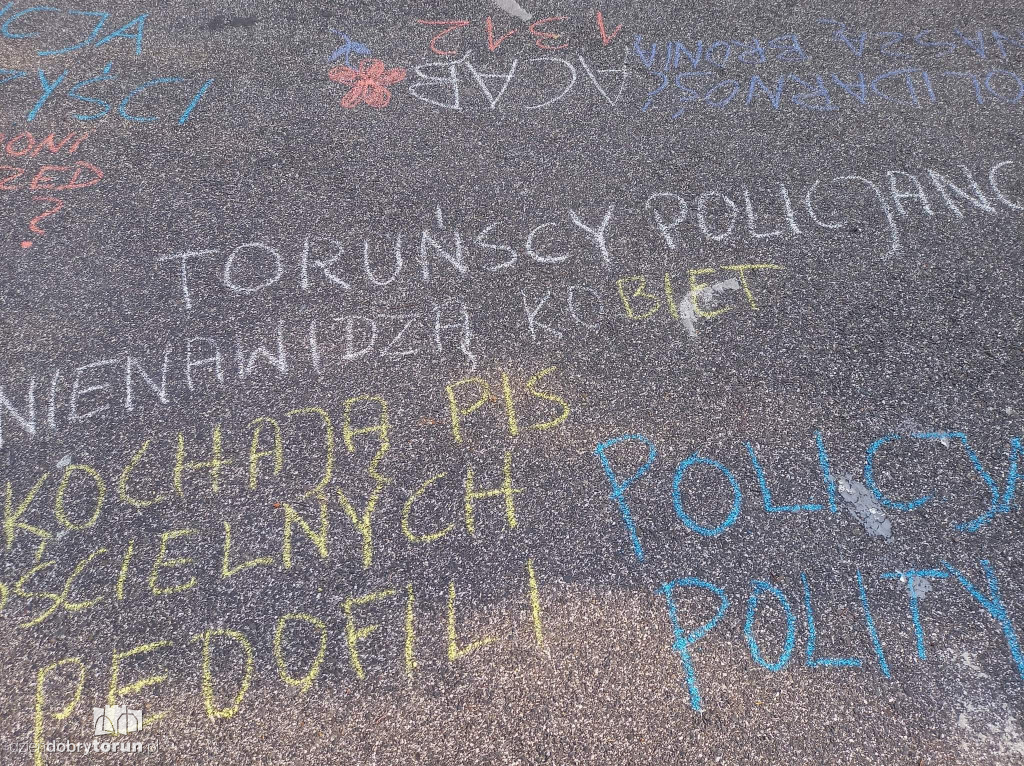 CJA
YŚCI
1312
ACAB
OLIDARNOŚĆ
NASZĄ BRONIĄ
TORUŃSCY POLICJANC
NIENAWIDZĄ KOBIET
KOCHAJĄ PIS
OŚCIELNYCH
PEDOFILI
POLICY
POLITY
dobrytorun